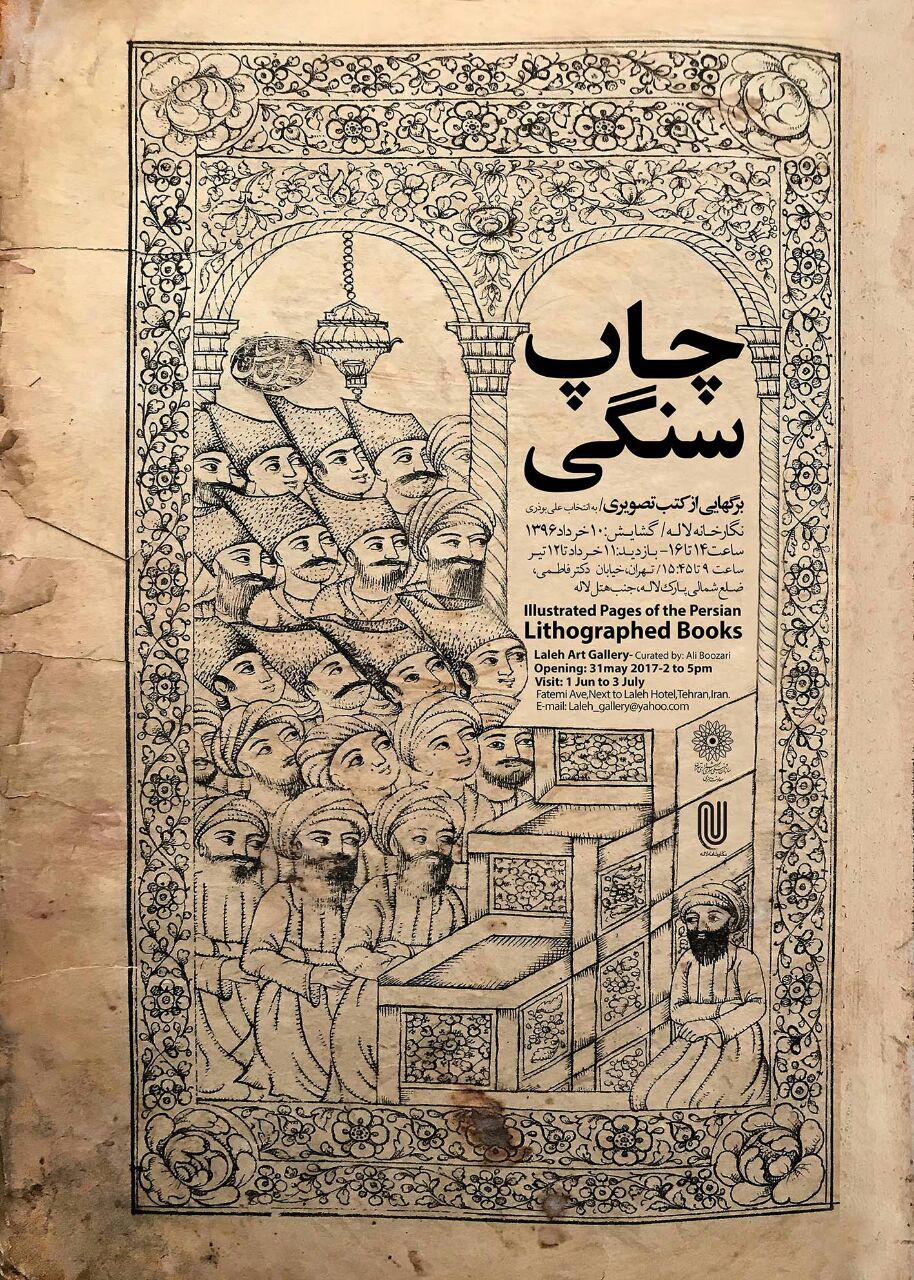 چاپ
سنگی
برگهایی از کتب تصویری/ به انتخاب علی بوذری
نگارخانه لاله/ گشایش: ۱۰ خرداد ۱۳۹۶
ساعت ۱۴ تا ۱۶- بازدید: ۱۱ خرداد تا ۱۲ تیر
ساعت ۹ تا ۱۵:۴۵/ تهران، خیابان دکتر فاطمی،
ضلع شمالی پارک لاله، جنب هتل لاله
Illustrated Pages of the Persian
Lithographed Books
Laleh Art Gallery- Curated by: Ali Boozari
Opening: 31may 2017-2 to 5pm
Visit: 1 Jun to 3 July
Fatemi Ave,Next to Laleh Hotel,Tehran,Iran.
E-mail: Laleh_gallery@yahoo.com
نگارخانه لاله